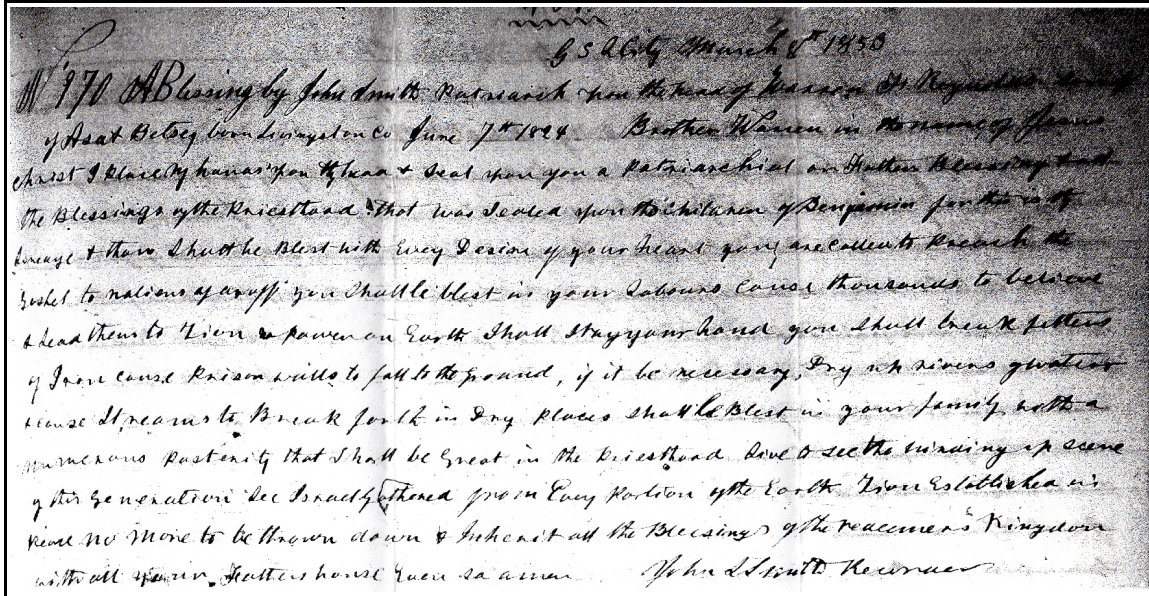 G S L City March 8th 1853
No 970 A Blessing by John Smith Patriarch upon the head of Warren F. Reynolds
of Asa & Betsey born Livingston Co June 7th 1824 Brother Warren in the name of Jesus
Christ I Place my hands upon thy head & Seal upon you a Patriarchial or Fathers Blessing & all
the Blessings of the Priesthood that was Sealed upon the Children of Benjamin for this is thy
Lineage & thou Shalt be Blest with Every Desire of your heart you are called to Preach the
Gospel to nations afar off you Shall be blest in your Labours Cause thousands to believe
& Lead them to Zion no Power on Earth Shall Stay your hand you Shall break fetters
of Iron cause Prison walls to fall to the ground, if it be necessary, Dry up rivers of water
cause Streams to Break forth in Dry Places shall be Blest in your family with a
numerous Posterity that Shall be Great in the Priesthood Live to see the winding up scene
of this Generation See Israel Gathered from Every Portion of the Earth Zion Established in
Peace no more to be thrown down & Inherit all the Blessings of the redeemers Kingdom
with all your Fathers house Even so amen John L Smith Recorder